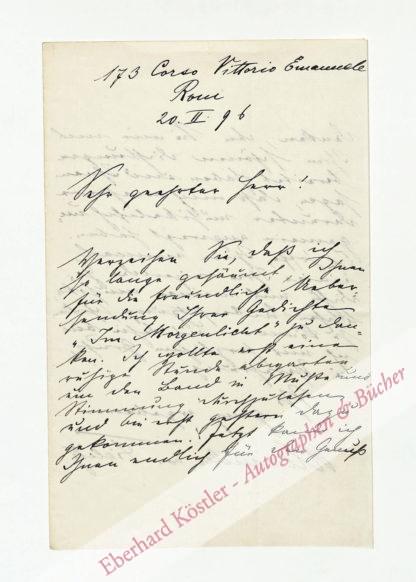 173 Corso Vittorio Emanuele
Rom
20. II. 96
Sehr geehrter Herr!
Verzeihen Sie, daß ich
so lange gesäumt, Ihnen
für die freundliche Ueber-
sendung Ihrer Gedichte
"Im Morgenlicht" zu dan-
ken. Ich wollte erst eine
ruhige Stunde abwarten
um den Band in Muße und
Stimmung durchzulesen
und bin erst gestern dazu
gekommen. Jetzt kann ich
Ihnen endlich für den Genuß
Eberhard Köstler - Autographen & Bücher